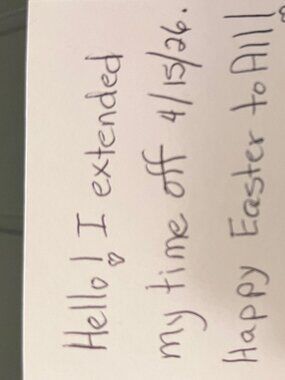 Hello! I extended
my time off 4/15/26.
Happy Easter to All!